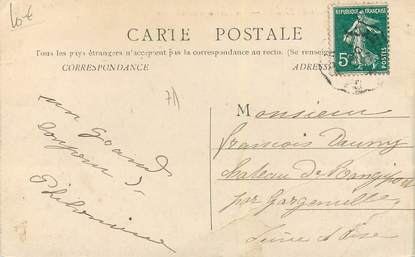 10€
CARTE POSTALE
Tous les pays étrangers n'acceptent pas la correspondance au recto. (Se renseig
CORRESPONDANCE
ADRESS
REPUBLIQUE FRANÇAISE
5c
POSTES
un grand
Monsieur
François
chateau de
par Gargenville
Seine et Oise